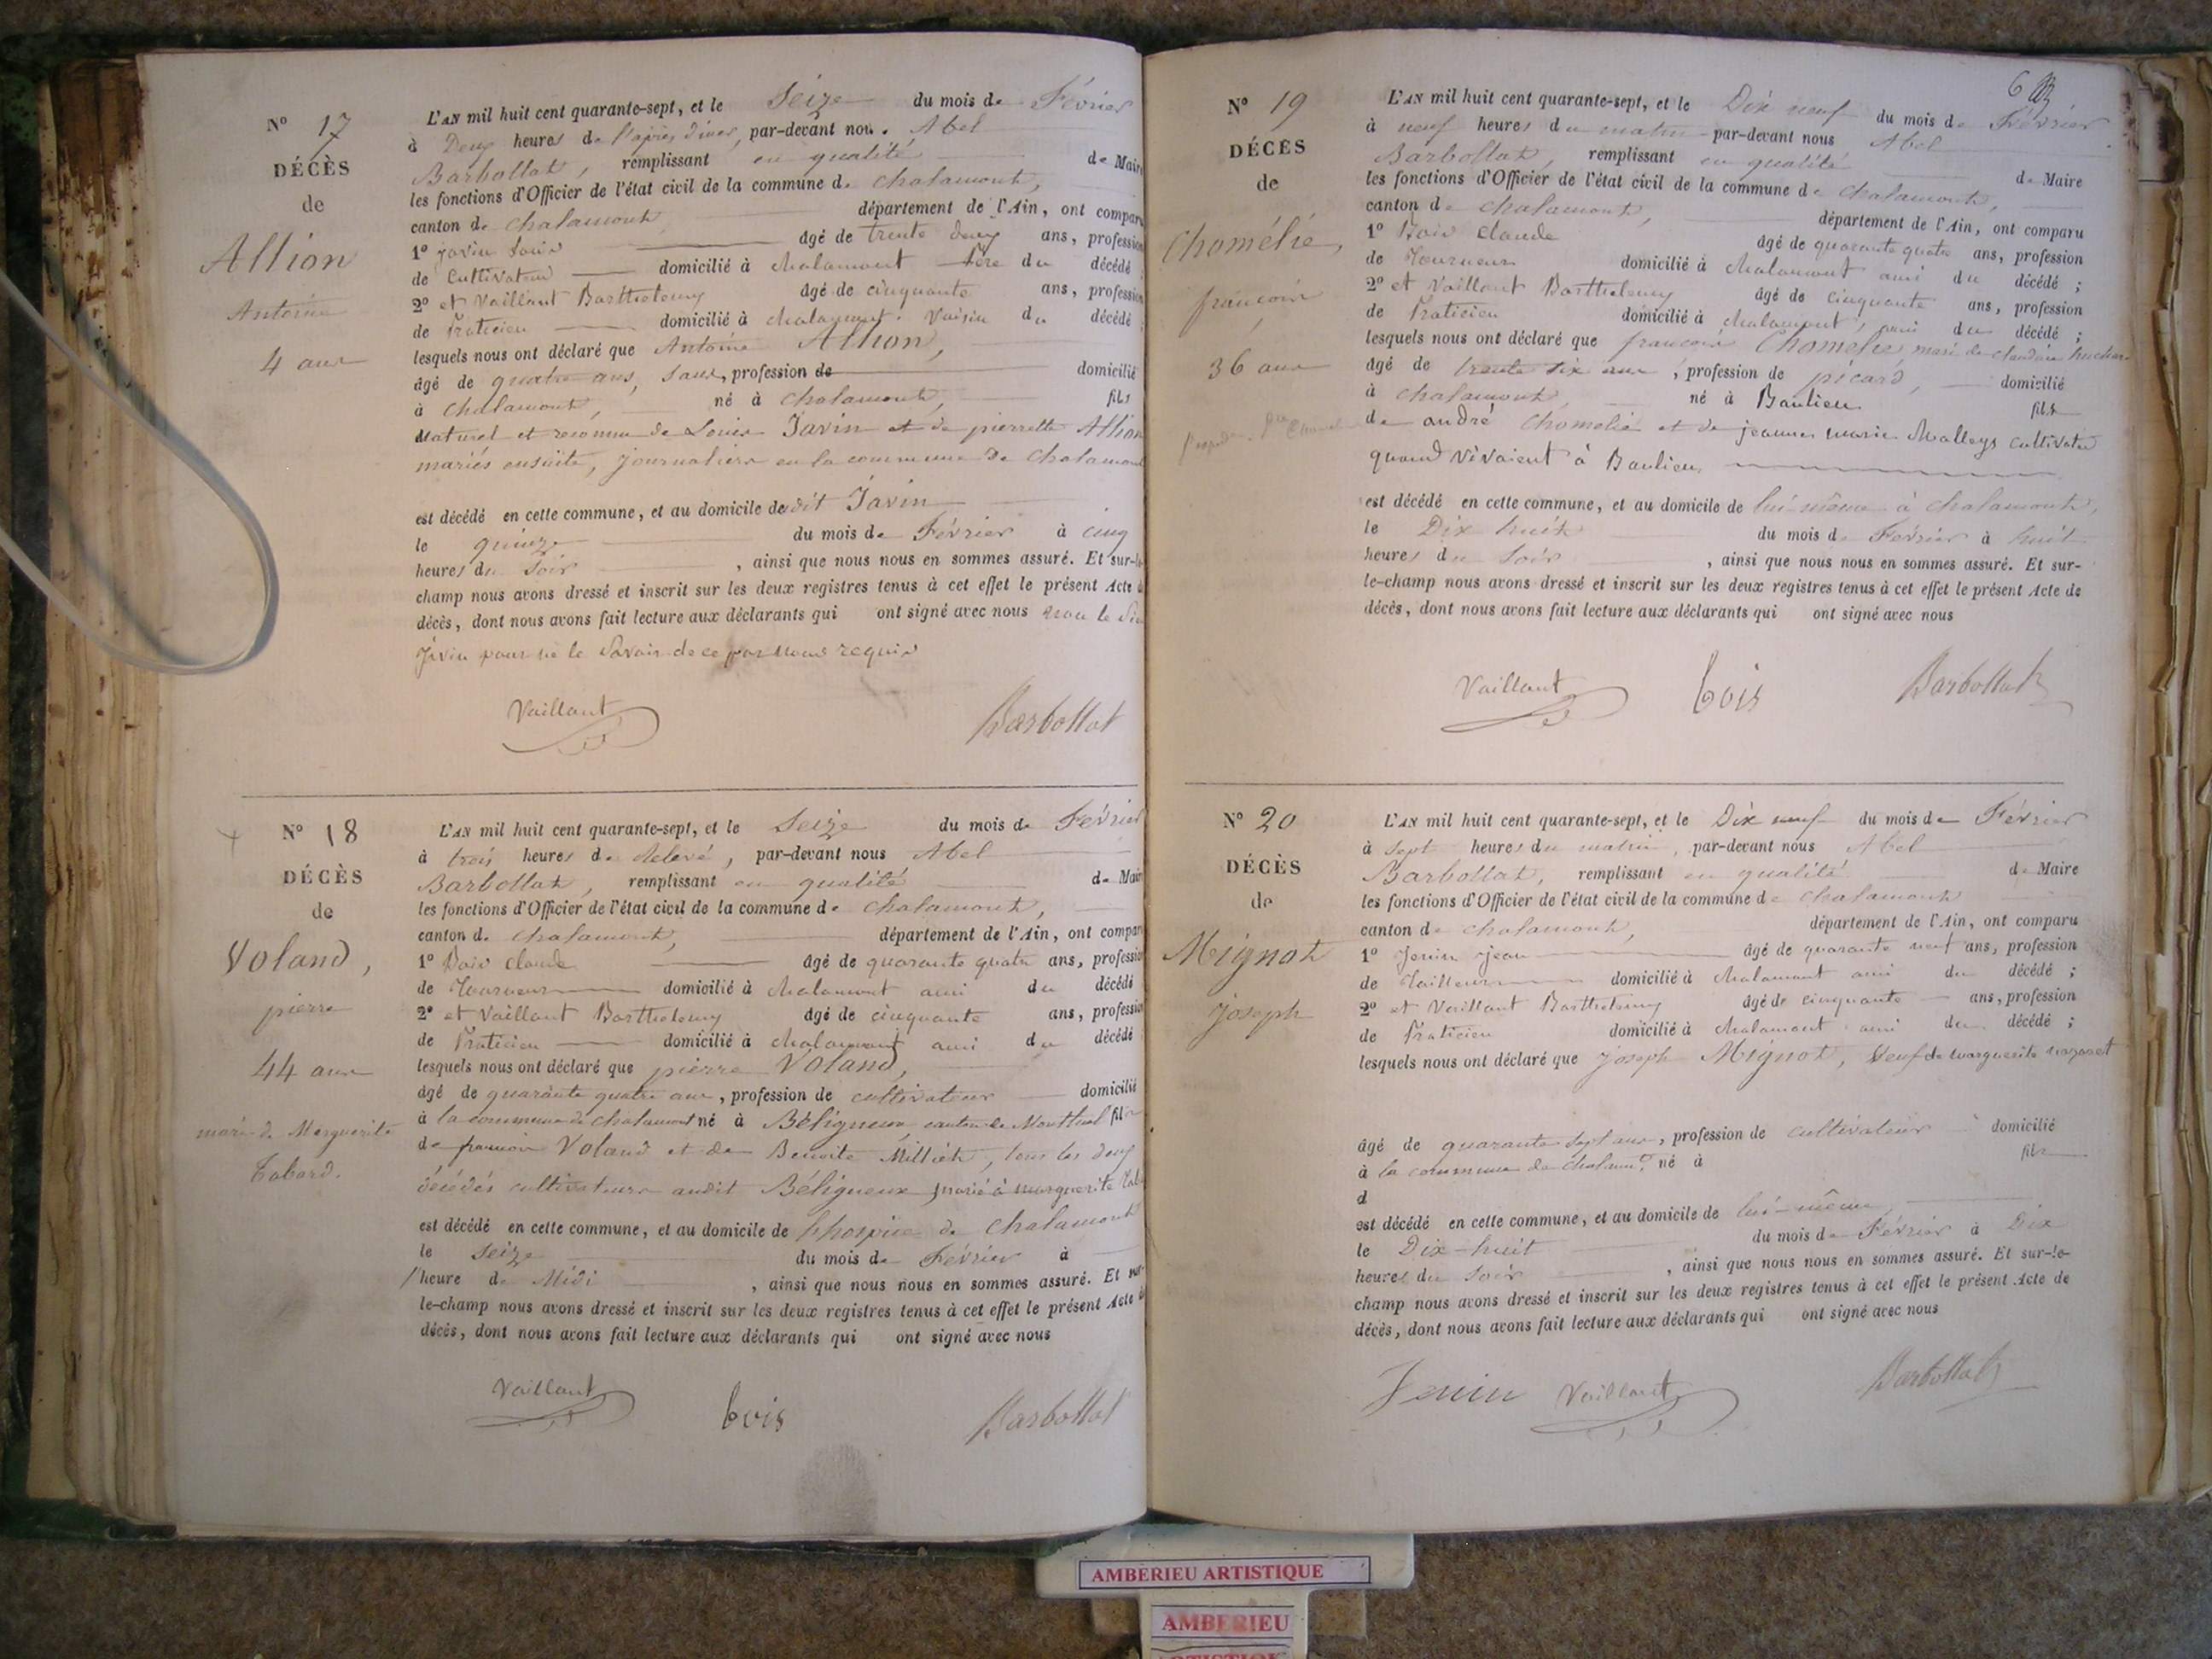 Nº 17
DÉCÈS
de
Allion
Antoine
4 ans
L'AN mil huit cent quarante-sept, et le Seize du mois de Février
à Deux heures de l'après diner, par-devant nous Abel
Barbollat, remplissant en qualité de Maire
les fonctions d'Officier de l'état civil de la commune de chalamont,
canton de chalamont, département de l'Ain, ont comparu
1º javin Louis âgé de trente deux ans, profession
de Cultivateur domicilié à chalamont Père du décédé
2º et Vaillant Barthelemy âgé de cinquante ans, profession
de Praticien domicilié à chalamont. Voisin du décédé
lesquels nous ont déclaré que Antoine Allion,
âgé de quatre ans, sans, profession de domicilié
à chalamont, né à chalamont, fils
Naturel et reconnu de Louis Javin et de pierrette Allion
mariés ensuite, journaliers en la commune de Chalamont
est décédé en cette commune, et au domicile de dit Javin
le quinze du mois de Février à cinq
heures du Soir, ainsi que nous nous en sommes assuré. Et sur-le-
champ nous avons dressé et inscrit sur les deux registres tenus à cet effet le présent Acte de
décès, dont nous avons fait lecture aux déclarants qui ont signé avec nous non le
Javin pour ne le Savoir de ce par nous requis
Vaillant Barbollat
Nº 18
DÉCÈS
de
Voland,
pierre
44 ans
marié de Marguerite
Tabard.
L'AN mil huit cent quarante-sept, et le Seize du mois de Février
à trois heures de Relevé, par-devant nous Abel
Barbollat, remplissant en qualité de Maire
les fonctions d'Officier de l'état civil de la commune de Chalamont,
canton de chalamont, département de l'Ain, ont comparu
1º Bois Claude âgé de quarante quatre ans, profession
de Tourneur domicilié à chalamont ami du décédé
2º et Vaillant Barthelemy âgé de cinquante ans, profession
de Praticien domicilié à chalamont ami du décédé
lesquels nous ont déclaré que pierre Voland,
âgé de quarante quatre ans, profession de cultivateur domicilié
à la commune de chalamont né à Béligneux, canton de Montluel fils
de françois Voland et de Benoite Milliet, tous les deux
décédés cultivateurs audit Béligneux, marié à marguerite
est décédé en cette commune, et au domicile de l'hospice de Chalamont
le Seize du mois de Février à
heure de Midi, ainsi que nous nous en sommes assuré. Et sur-
le-champ nous avons dressé et inscrit sur les deux registres tenus à cet effet le présent Acte de
décès, dont nous avons fait lecture aux déclarants qui ont signé avec nous
Vaillant bois Barbollat
6
Nº 19
DÉCÈS
de
Chomélie,
françois
36 ans
L'AN mil huit cent quarante-sept, et le Dix neuf du mois de Février
à neuf heures du matin par-devant nous Abel
Barbollat, remplissant en qualité de Maire
les fonctions d'Officier de l'état civil de la commune de Chalamont,
canton de chalamont, département de l'Ain, ont comparu
1º Bois Claude âgé de quarante quatre ans, profession
de Tourneur domicilié à chalamont ami du décédé ;
2º et Vaillant Barthelemy âgé de cinquante ans, profession
de Praticien domicilié à chalamont, ami du décédé ;
lesquels nous ont déclaré que françois Chomelie mari de claudine
âgé de trente six ans, profession de picard, domicilié
à chalamont, né à Baulieu fils
de andré Chomelie et de jeanne marie Malleys cultivateurs
quand vivaient à Baulieu
est décédé en cette commune, et au domicile de lui-même à chalamont,
le Dix huit du mois de Février à huit
heures du Soir, ainsi que nous nous en sommes assuré. Et sur-
le-champ nous avons dressé et inscrit sur les deux registres tenus à cet effet le présent Acte de
décès, dont nous avons fait lecture aux déclarants qui ont signé avec nous
Vaillant bois Barbollat
Nº 20
DÉCÈS
de
Mignot
joseph
L'AN mil huit cent quarante-sept, et le Dix neuf du mois de Février
à Sept heures du matin, par-devant nous Abel
Barbollat, remplissant en qualité de Maire
les fonctions d'Officier de l'état civil de la commune de Chalamont
canton de chalamont, département de l'Ain, ont comparu
1º Jenin jean âgé de quarante neuf ans, profession
de Tailleur domicilié à chalamont ami du décédé ;
2º et Vaillant Barthelemy âgé de cinquante ans, profession
de Praticien domicilié à chalamont ami du décédé ;
lesquels nous ont déclaré que joseph Mignot, Veuf de marguerite
âgé de quarante sept ans, profession de cultivateur domicilié
à la commune de chalamt né à fils
d
est décédé en cette commune, et au domicile de lui-même,
le Dix-huit du mois de Février à Dix
heures du Soir, ainsi que nous nous en sommes assuré. Et sur-le-
champ nous avons dressé et inscrit sur les deux registres tenus à cet effet le présent Acte de
décès, dont nous avons fait lecture aux déclarants qui ont signé avec nous
Jenin Vaillant Barbollat
AMBERIEU ARTISTIQUE
AMBERIEU
ARTISTIQUE